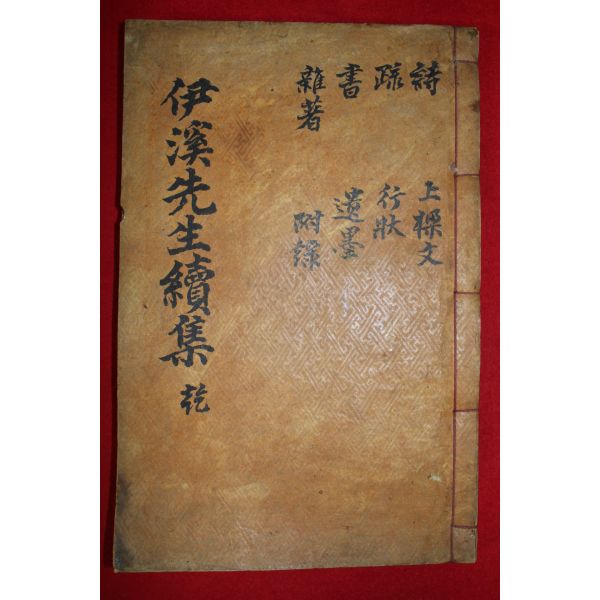 詩
疏
書
雜著
上樑文
行狀
遺墨
附錄
伊溪先生續集 乾